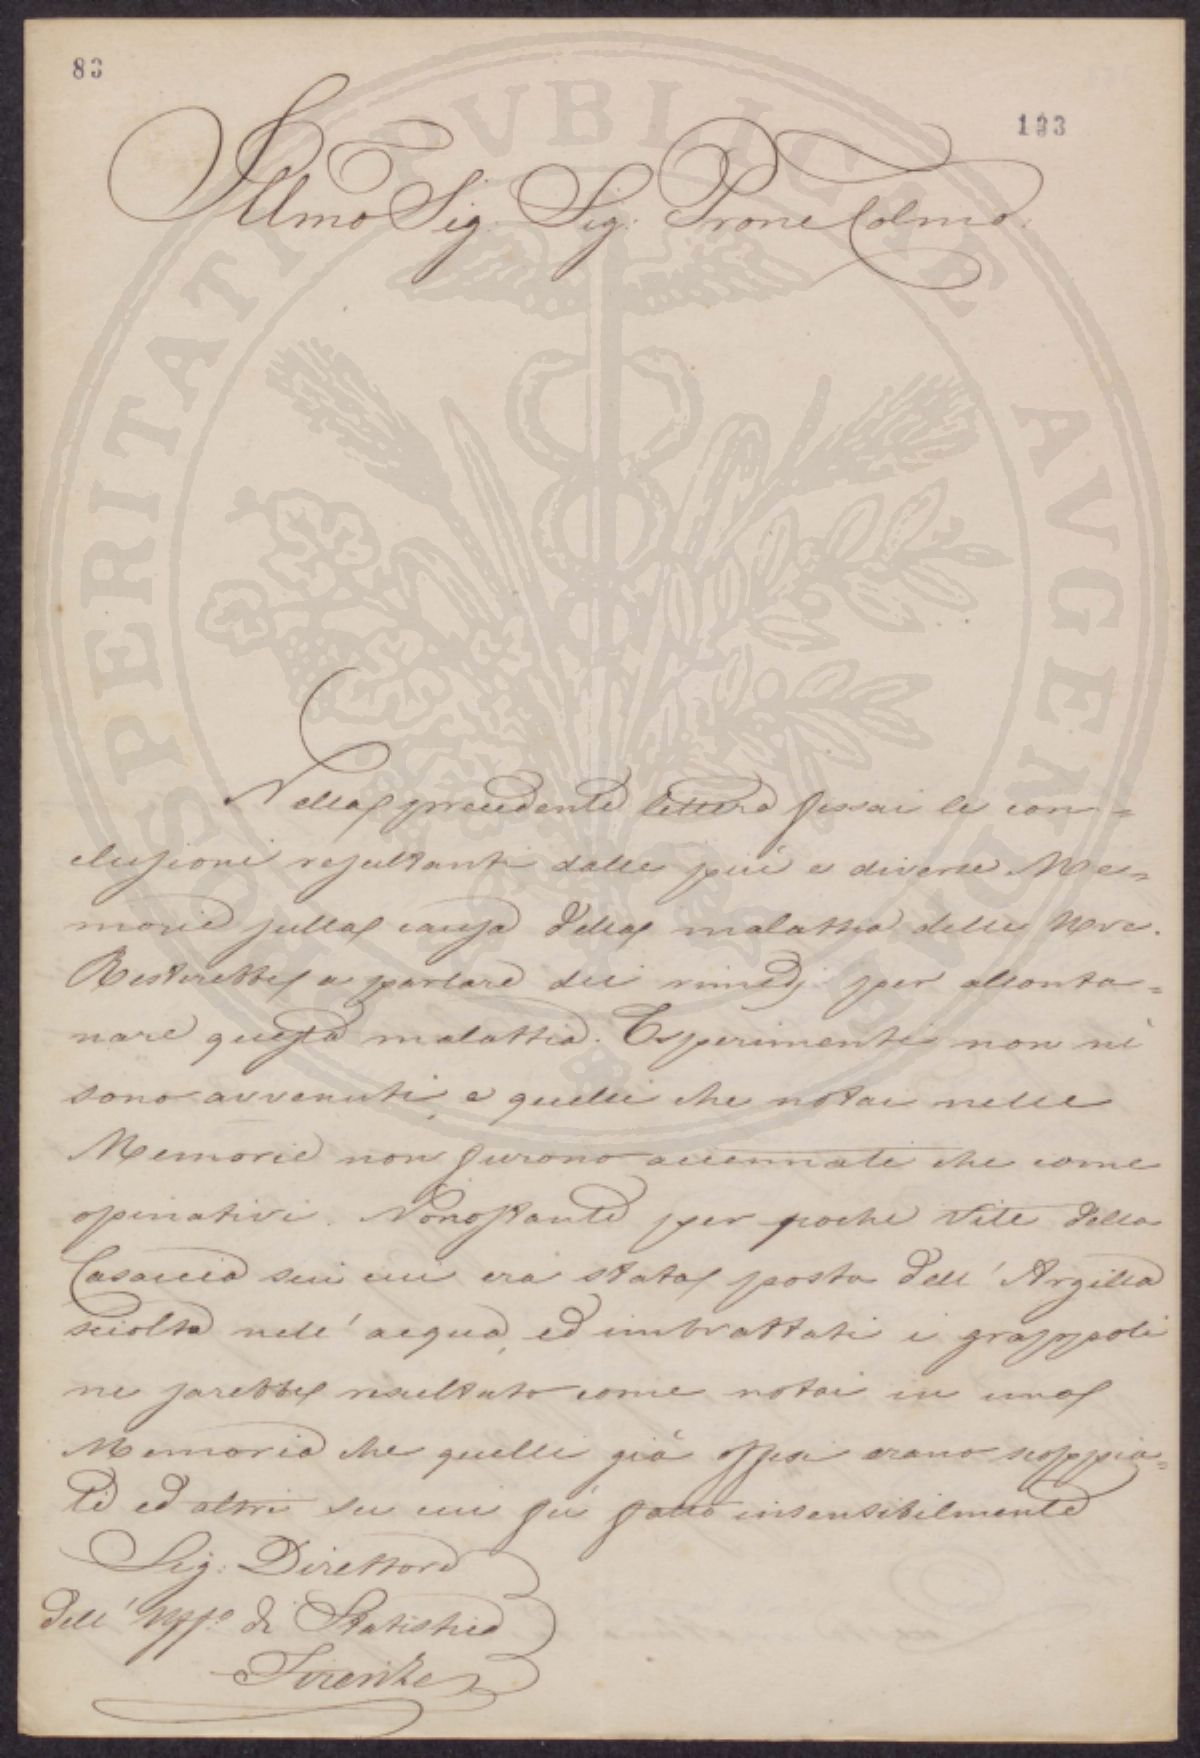 83
193
Illmo Sig. Sig: Prone Colmo.
Nella precedente lettera fissai le con=
clusioni resultanti dalle più e diverse Me=
morie sulla causa della malattia delle Uve.
Resterebbe a parlare dei rimedj per allonta=
nare questa malattia. Esperimenti non ne
sono avvenuti, e quelli che notai nelle
Memorie non furono accennati che come
opinativi. Nonostante per poche Vite della
Casaccia sui cui era stata posta dell' Argilla
sciolta nell' acqua, ed imbrattati i grappoli
ne sarebbe resultato come notai in una
Memoria che quelli già offesi erano scoppia=
ti ed altri su cui fù fatto insensibilmente
Sig: Direttore
dell' Uffo. di Statistica
Firenze
PROSPERITATI PVBLICAE AVGENDAE